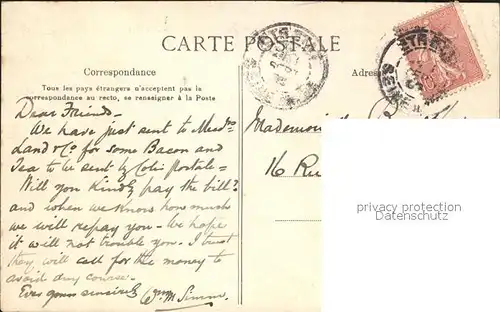 CARTE POSTALE
Correspondance
Adres
Tous les pays étrangers n'acceptent pas la
correspondance au recto, se renseigner à la Poste
Dear Friends
We have just sent to
Land & Co for some Bacon and
Tea to be sent by Colis Postale -
Will you kindly pay the bill?
and when we know how much
we will repay you - We hope
it will not trouble you. I trust
they will call for the money to
avoid any course.
Ever yours sincerely Wm M
Mademoi
16 Ru
privacy protection
Datenschutz